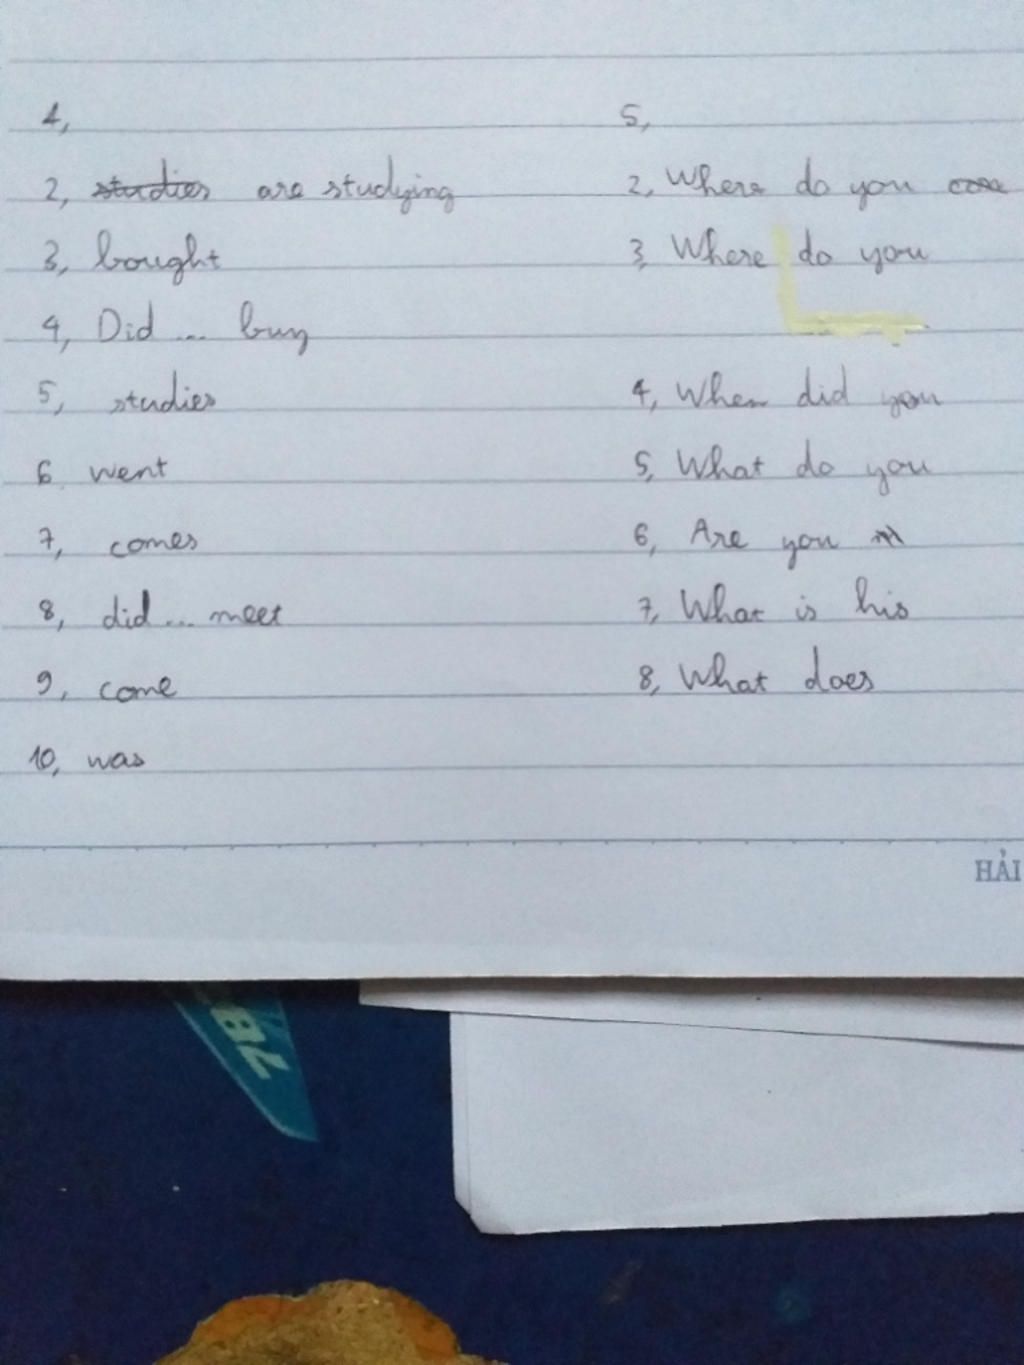 4,
2, studies are studying
3, bought
4, Did ... buy
5, studies
6 went
7, comes
8, did ... meet
9, come
10, was
5,
2, Where do you
3, Where do you
4, When did you
5, What do you
6, Are you
7, What is his
8, What does
HẢI